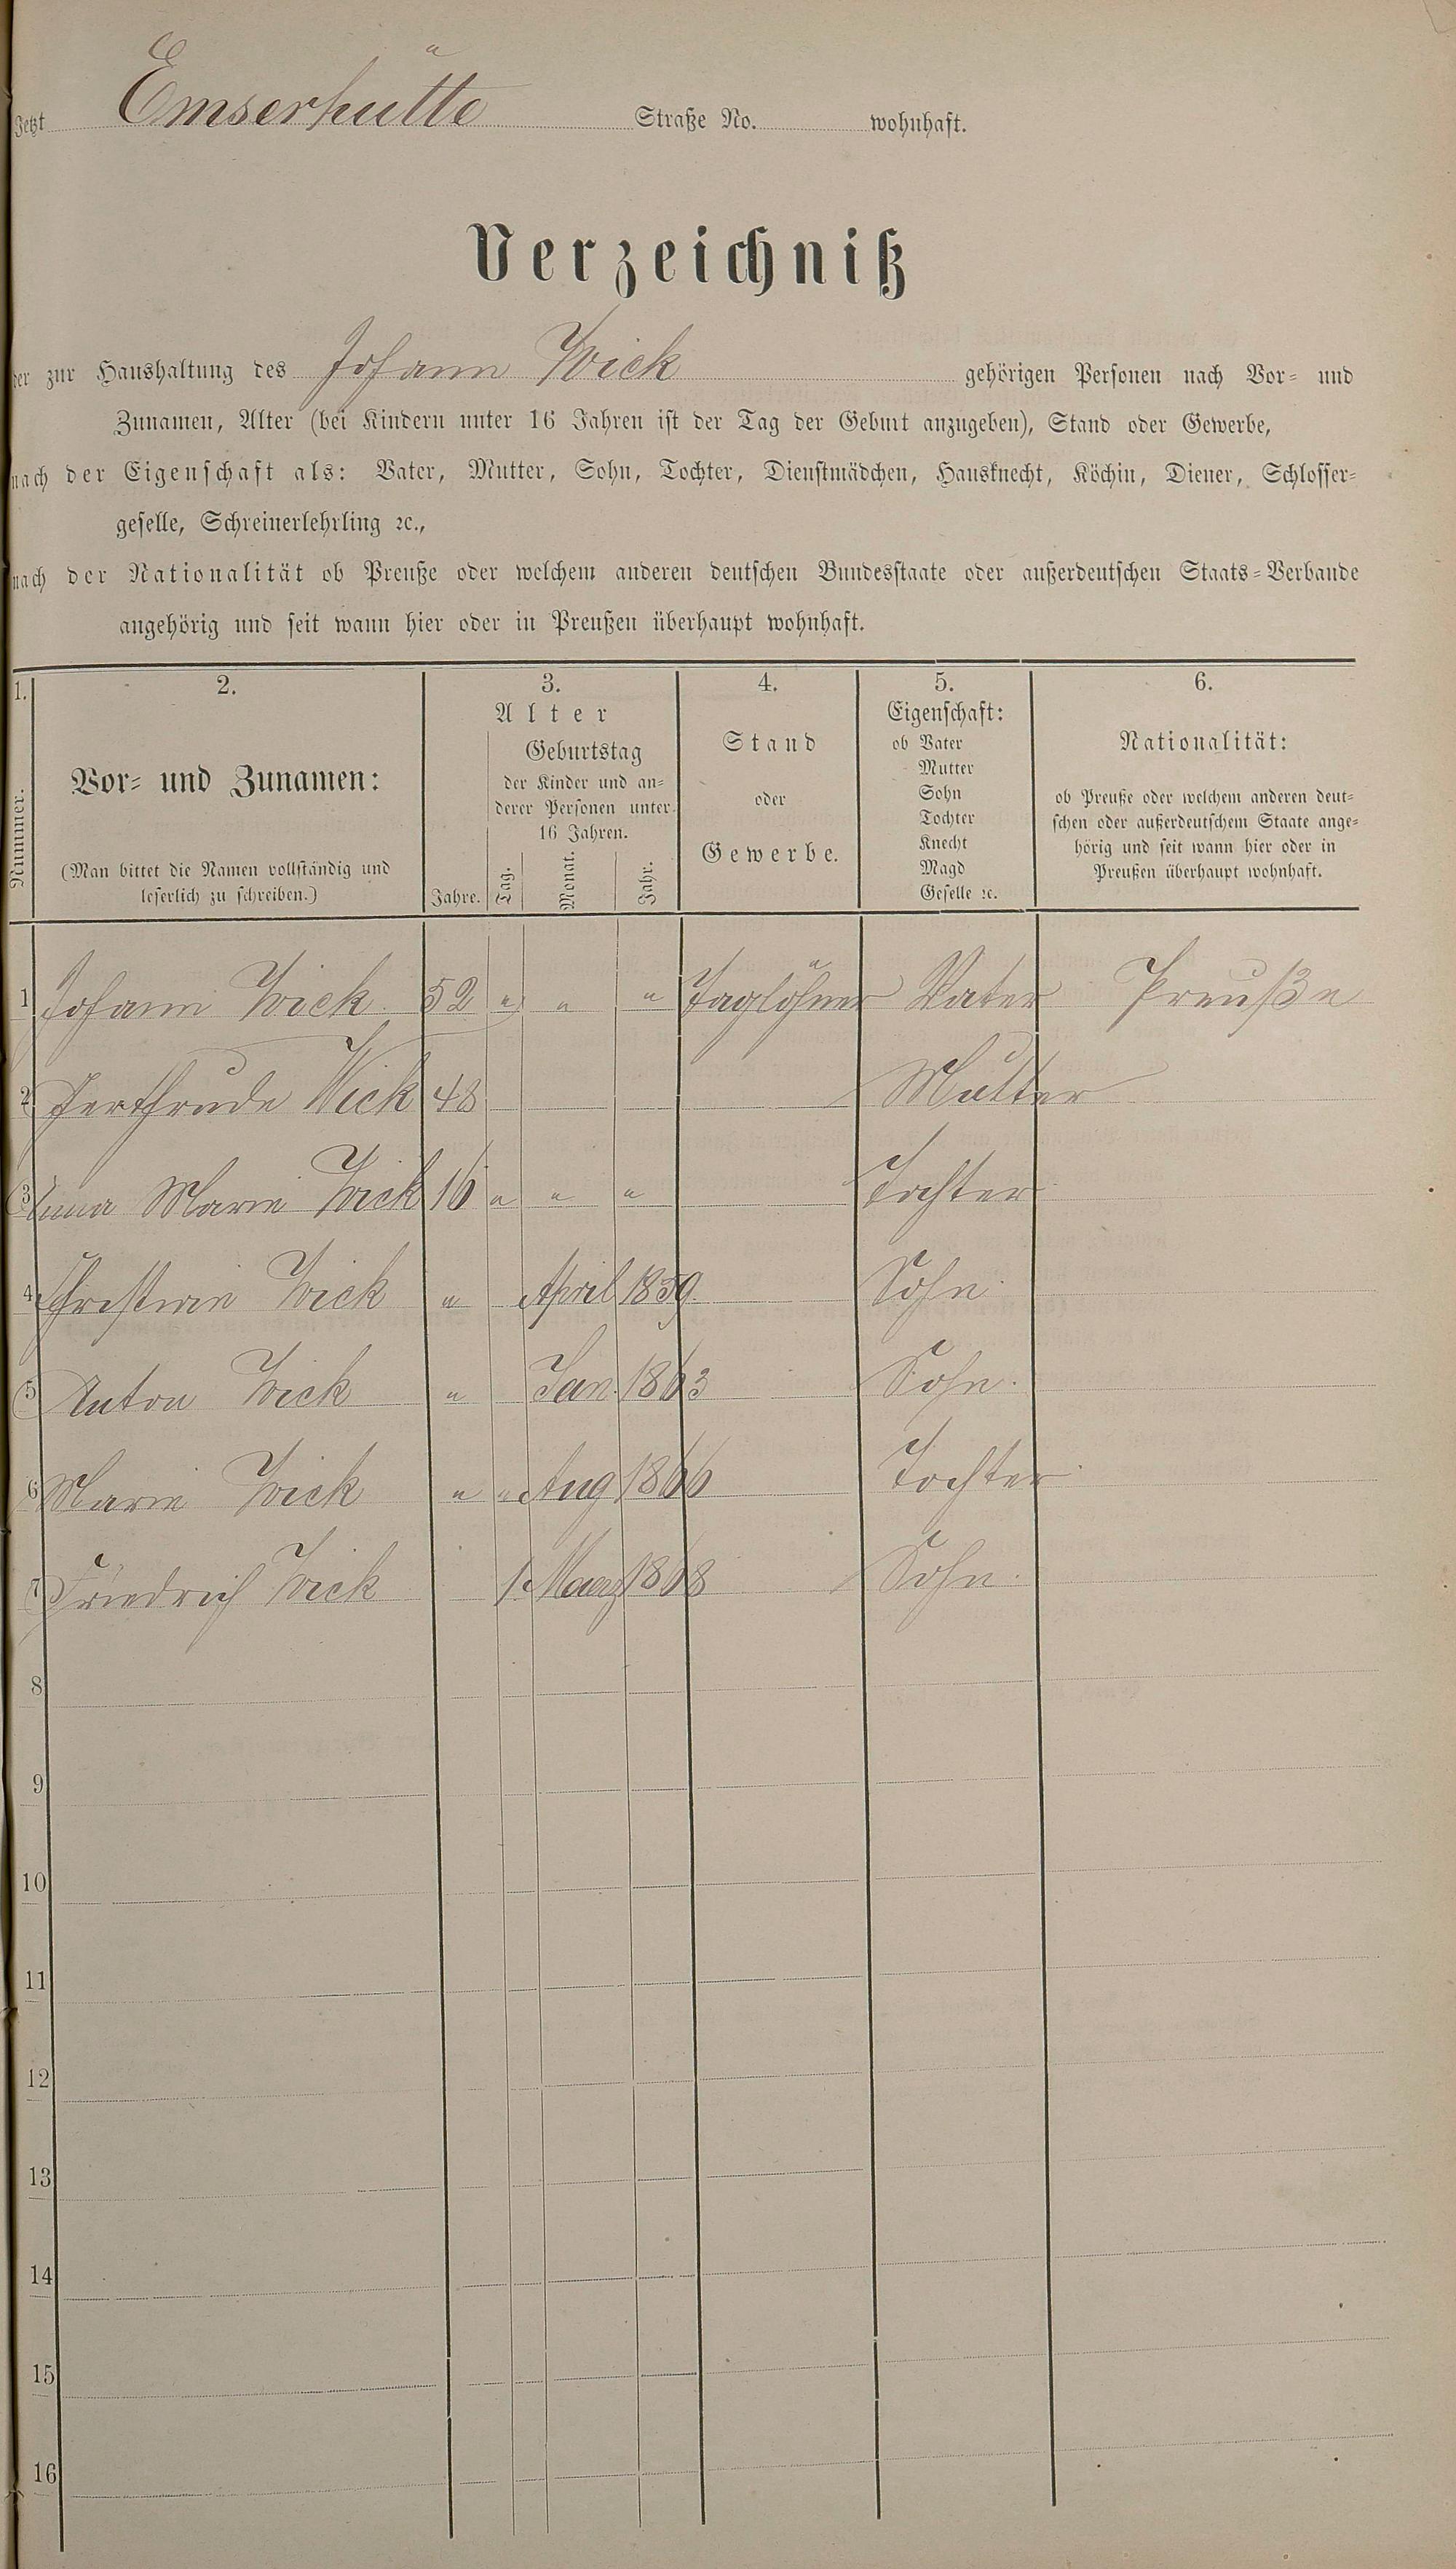 Jetzt Emserhütte Straße No. wohnhaft.
Verzeichniß
der zur Haushaltung des Johann Wick gehörigen Personen nach Vor- und
Zunamen, Alter (bei Kindern unter 16 Jahren ist der Tag der Geburt anzugeben), Stand oder Gewerbe,
nach der Eigenschaft als: Vater, Mutter, Sohn, Tochter, Dienstmädchen, Hausknecht, Köchin, Diener, Schlosser-
geselle, Schreinerlehrling ꝛc.,
nach der Nationalität ob Preuße oder welchem anderen deutschen Bundesstaate oder außerdeutschen Staats-Verbande
angehörig und seit wann hier oder in Preußen überhaupt wohnhaft.
1.
Nummer.
2.
Vor- und Zunamen:
(Man bittet die Namen vollständig und
leserlich zu schreiben.)
3.
Alter
Jahre.
Geburtstag
der Kinder und an-
derer Personen unter
16 Jahren.
Tag. Monat. Jahr.
4.
Stand
oder
Gewerbe.
5.
Eigenschaft:
ob Vater
Mutter
Sohn
Tochter
Knecht
Magd
Geselle ꝛc.
6.
Nationalität:
ob Preuße oder welchem anderen deut-
schen oder außerdeutschem Staate ange-
hörig und seit wann hier oder in
Preußen überhaupt wohnhaft.
1 Johann Wick 52 " " " Taglöhner Vater Preuße
2 Gerthrude Wick 48 Mutter
3 Anna Marie Wick 16 " " " Tochter
4 Christian Wick " April 1859 Sohn
5 Anton Wick " Jan. 1863 Sohn.
6 Marie Wick " " Aug 1866 Tochter
7 Friedrich Wick 1. Maerz 1868 Sohn.
8
9
10
11
12
13
14
15
16